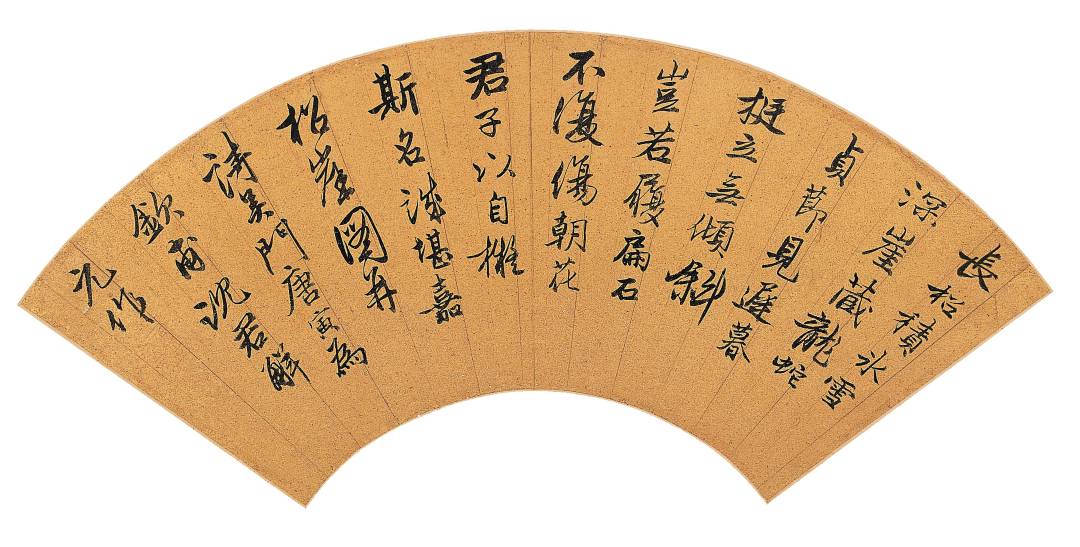 長松積氷雪
深崖藏龍蛇
貞節見遲暮
挺立無傾斜
豈若履扁石
不復傷朝花
君子以自擬
斯名誠堪嘉
松崖圖并
詩吳門唐寅為
欽甫沈君解
元作